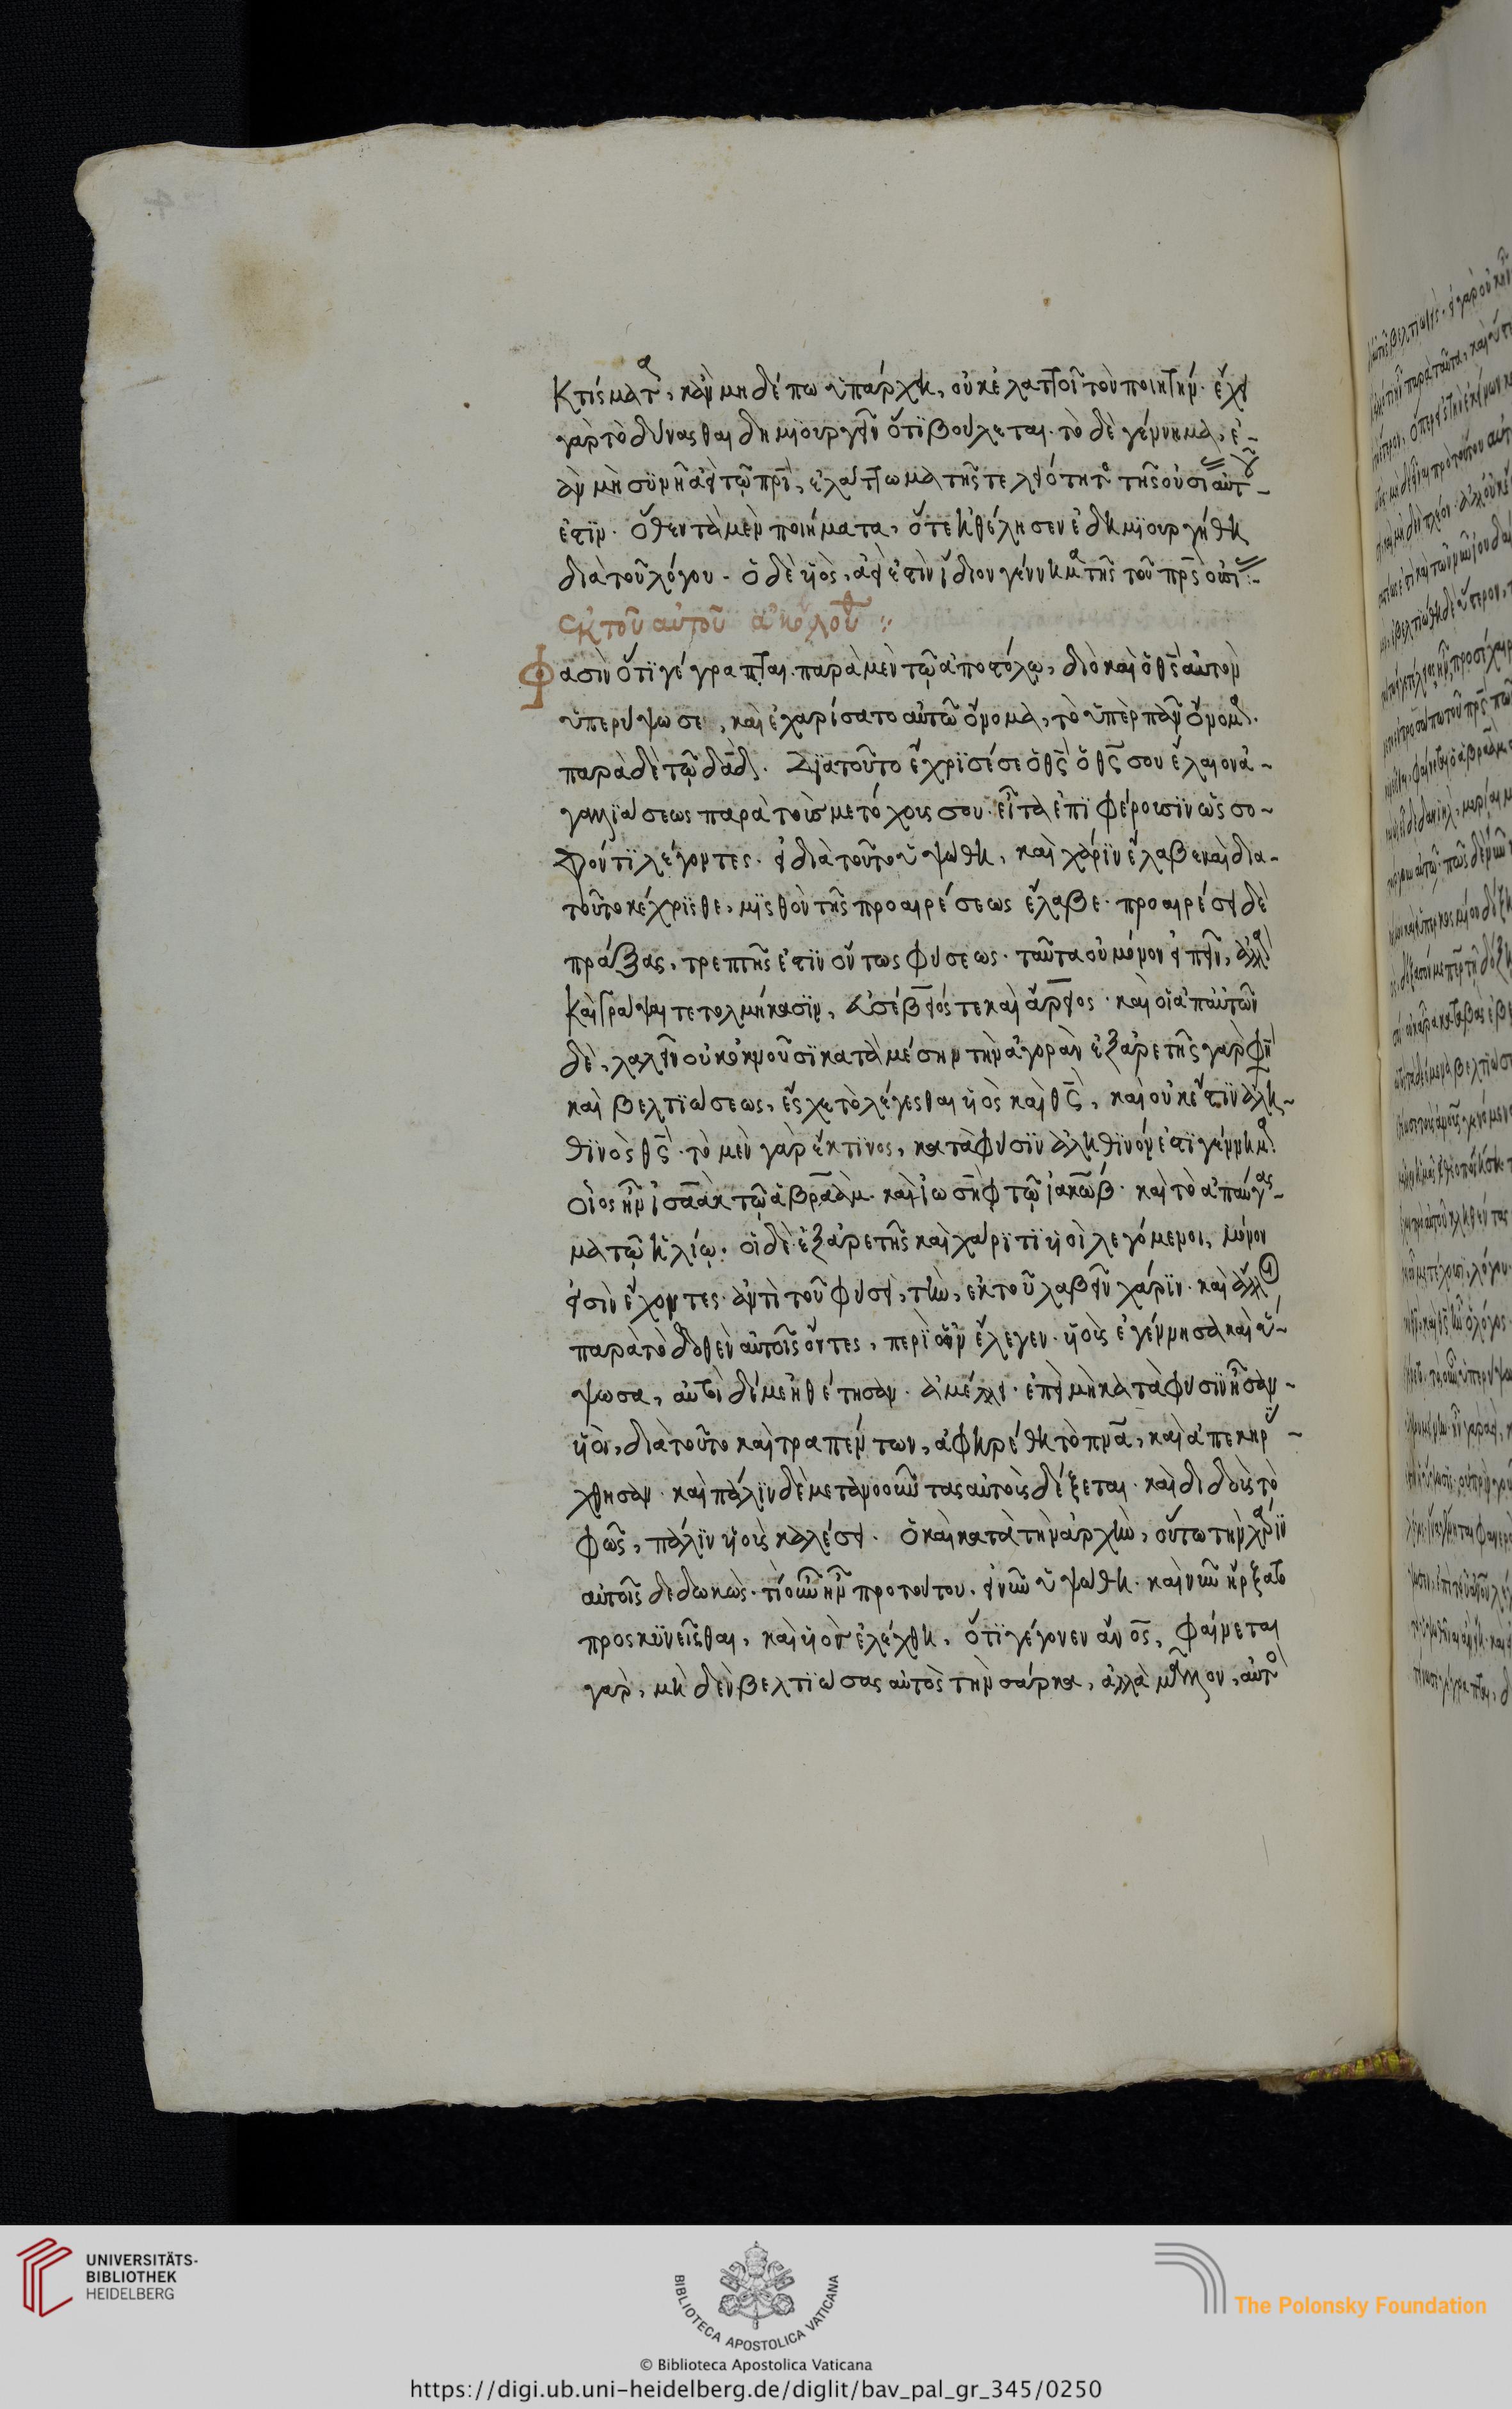 κτίσματα, κἂν μηδέπω ὑπάρχη, οὐκ ἐλαττοῖ τὸν ποιητήν. ἔχει
γὰρ τὸ δύνασθαι δημιουργεῖν ὅτι βούλεται. τὸ δὲ γέννημα, ἐ-
ὰν μὴ συνῆ ἀεὶ τῶ πρι, ἐλάττωμα τῆς τελειότητος τῆς οὐσίας αὐτοῦ-
ἐστιν. ὅθεν τὰ μὲν ποιήματα, ὅτε ἠθέλησεν ἐδημιουργήθη
διὰ τοῦ λόγου. ὁ δὲ υἱὸς, ἀεὶ ἐστὶν ἴδιον γέννημα τῆς τοῦ πρς οὐσίας:-
ἐκ τοῦ αὐτοῦ ἀκόλουθ :-
Φασὶν ὅτι γέγραπται. παρὰ μὲν τῶ ἀποστόλω, διὸ καὶ ὁ θς αὐτὸν
ὑπερύψωσε, καὶ ἐχαρίσατο αὐτῶ ὄνομα, τὸ ὑπὲρ πᾶν ὄνομα.
παρὰ δὲ τῶ δαδ. διατοῦτο ἔχρισέ σε ὁ θς ὁ θς σου ἔλαιον ἀ-
γαλλιάσεως παρὰ τοὺς μετόχους σου. εἶτα ἐπιφέρουσιν ὥς σο-
φόν τι λέγοντες. εἰ διὰ τοῦτο ὑψώθη, καὶ χάριν ἔλαβε καὶ δια-
τοῦτο κέχρισθε, μισθὸν τῆς προαιρέσεως ἔλαβε. προαιρέσει δὲ
πράξας, τρεπτῆς ἐστιν οὕτως φύσεως. ταῦτα οὐ μόνον εἰπεῖν, ἀλλὰ
καὶ γράψαι τετολμήκασιν, εὐσέβειός τε καὶ ἄρειος. καὶ οἱ ἀπαὐτῶν
δὲ, λαλεῖν οὐκ ὀκνοῦσι κατὰ μέσην τὴν ἀγορὰν ἐξ ἀρετῆς γὰρ φη
καὶ βελτιώσεως, ἔσχε τὸ λέγεσθαι υἱὸς καὶ θς, καὶ οὐκ ἔστιν ἀλη-
θινὸς θς. τὸ μὲν γὰρ ἔκ τινος, κατὰ φύσιν ἀληθινόν ἐστι γέννημα.
οἷος ἦν ἰσαὰκ τῶ ἀβραάμ. καὶ ἰωσὴφ τῶ ἰακώβ. καὶ τὸ ἀπαύγασ-
μα τῶ ἡλίω. οἱ δὲ ἐξ ἀρετῆς καὶ χάριτι υἱοὶ λεγόμενοι, μόνον
εἰσὶν ἔχοντες ἀντὶ τοῦ φύσει, τὴν, ἐκ τοῦ λαβεῖν χάριν. καὶ ἄλλοι
παρὰ τὸ δοθὲν αὐτοῖς ὄντες, περὶ ὧν ἔλεγεν. υἱοὺς ἐγέννησα καὶ ὕ-
ψωσα, αὐτοὶ δέ με ἠθέτησαν. ἀμέλει. ἐπεὶ μὴ κατὰ φύσιν ἦσαν-
υἱοὶ, διατοῦτο καὶ τραπέντων, ἀφηρέθη τὸ πνα, καὶ ἀπεκηρύ-
χθησαν. καὶ πάλιν δὲ μετανοοῦντας αὐτοὺς δέξεται. καὶ διδοὺς τὸ
φῶς, πάλιν υἱοὺς καλέσει. ὁ καὶ κατὰ τὴν ἀρχὴν, οὕτω τὴν χάριν
αὐτοῖς δεδωκὼς. τί οὖν ἦν προτούτου. εἰ νῦν ὑψώθη. καὶ νῦν ἤρξατο
προσκυνεῖσθαι, καὶ υἱὸς ἐλέχθη, ὅτι γέγονεν ἄνος, φαίνεται
γὰρ, μὴ δὲν βελτιώσας αὐτὸς τὴν σάρκα, ἀλλὰ μᾶλλον, αὐτὸς
UNIVERSITÄTS-
BIBLIOTHEK
HEIDELBERG
BIBLIOTECA APOSTOLICA VATICANA
The Polonsky Foundation
© Biblioteca Apostolica Vaticana
https://digi.ub.uni-heidelberg.de/diglit/bav_pal_gr_345/0250